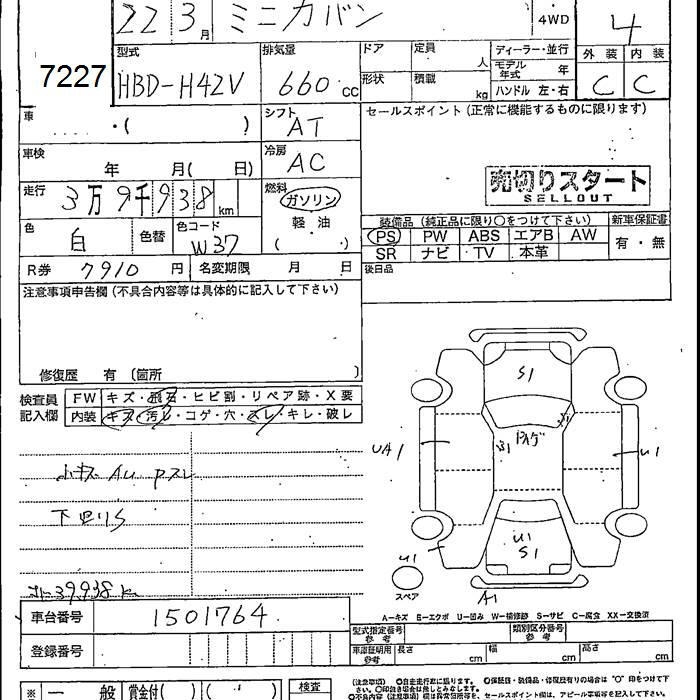 22 3月 ミニカバン
4WD
4
7227
型式 排気量 ドア 定員 人 ディーラー・並行
HBD-H42V 660cc
モデル年式 年
外装 内装
形状 積載 kg ハンドル 左・右
C C
車 ・( ) シフト AT
セールスポイント (正常に機能するものに限ります)
車検 年 月( 日) 冷房 AC
売切りスタート
SELLOUT
走行 3万9千938km 燃料 ガソリン
軽・油
( ・ )
色 白 色替 色コード W37
装備品 (純正品に限り○をつけて下さい) 新車保証書
PS PW ABS エアB AW 有・無
SR ナビ TV 本革
R券 7910 円 名変期限 月 日
後日品
注意事項申告欄 (不具合内容等は具体的に記入して下さい)
修復歴 有 (箇所 )
検査員記入欄
FW キズ・飛石・ヒビ割・リペア跡・X要
内装 キズ・汚レ・コゲ・穴・スレ・キレ・破レ
S1
UA1
U1
U1
S1
U1
A1
スペア
小キズ AU Pスレ
下回りS
39,938 K
A-キズ E-エクボ U-凹み W-補修跡 S-サビ C-腐食 XX-交換済
車台番号 1501764
型式指定番号 参考 類別区分番号 参考
登録番号
車庫証明用 参考 長さ cm 幅 cm 高さ cm
※ 一般 賞金付( ) ( ) 検査